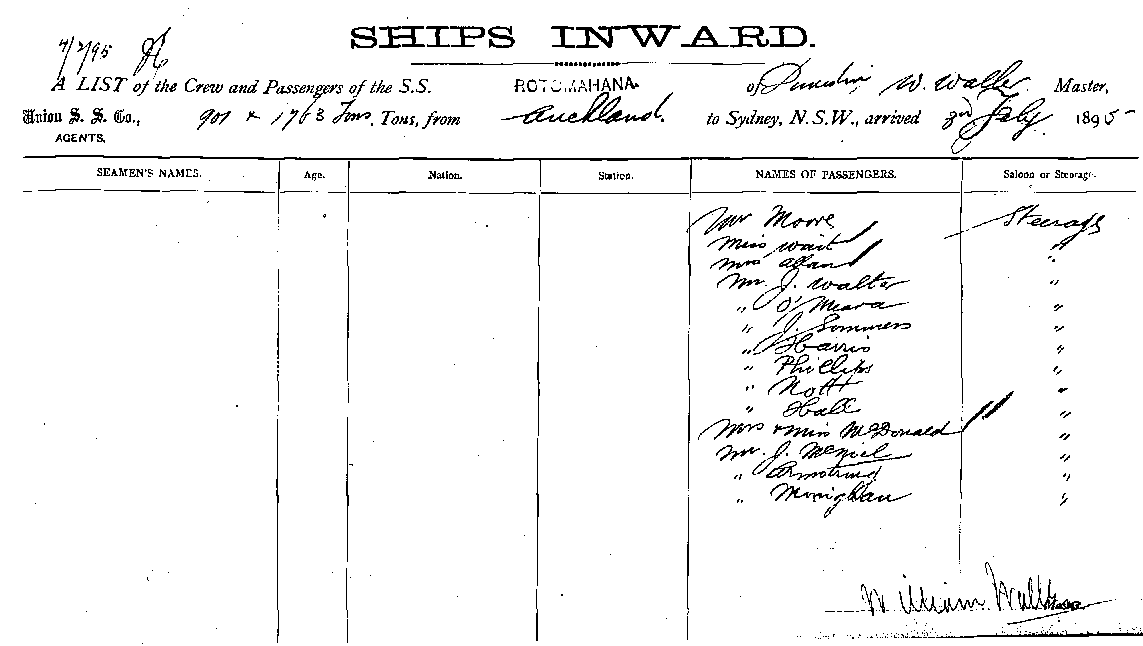 SHIPS INWARD.
4/7/95
A LIST of the Crew and Passengers of the S.S. ROTOMAHANA of Dunedin, W. Waller Master,
Union S. S. Co., 901 & 1763 Tons, Tons, from Auckland. to Sydney, N.S.W., arrived 3rd July 1895
AGENTS.
SEAMEN'S NAMES. Age. Nation. Station. NAMES OF PASSENGERS. Saloon or Steerage.
Mr Moore Steerage
Miss Wait "
Mrs Allan "
Mr. J. Walter "
" O'Meara "
" J. Sommers "
" Harris "
" Phillips "
" Nott "
" Hall "
Mrs & Miss McDonald "
Mr. J. McNiel "
" Armstrong "
" Monighan "
William Waller